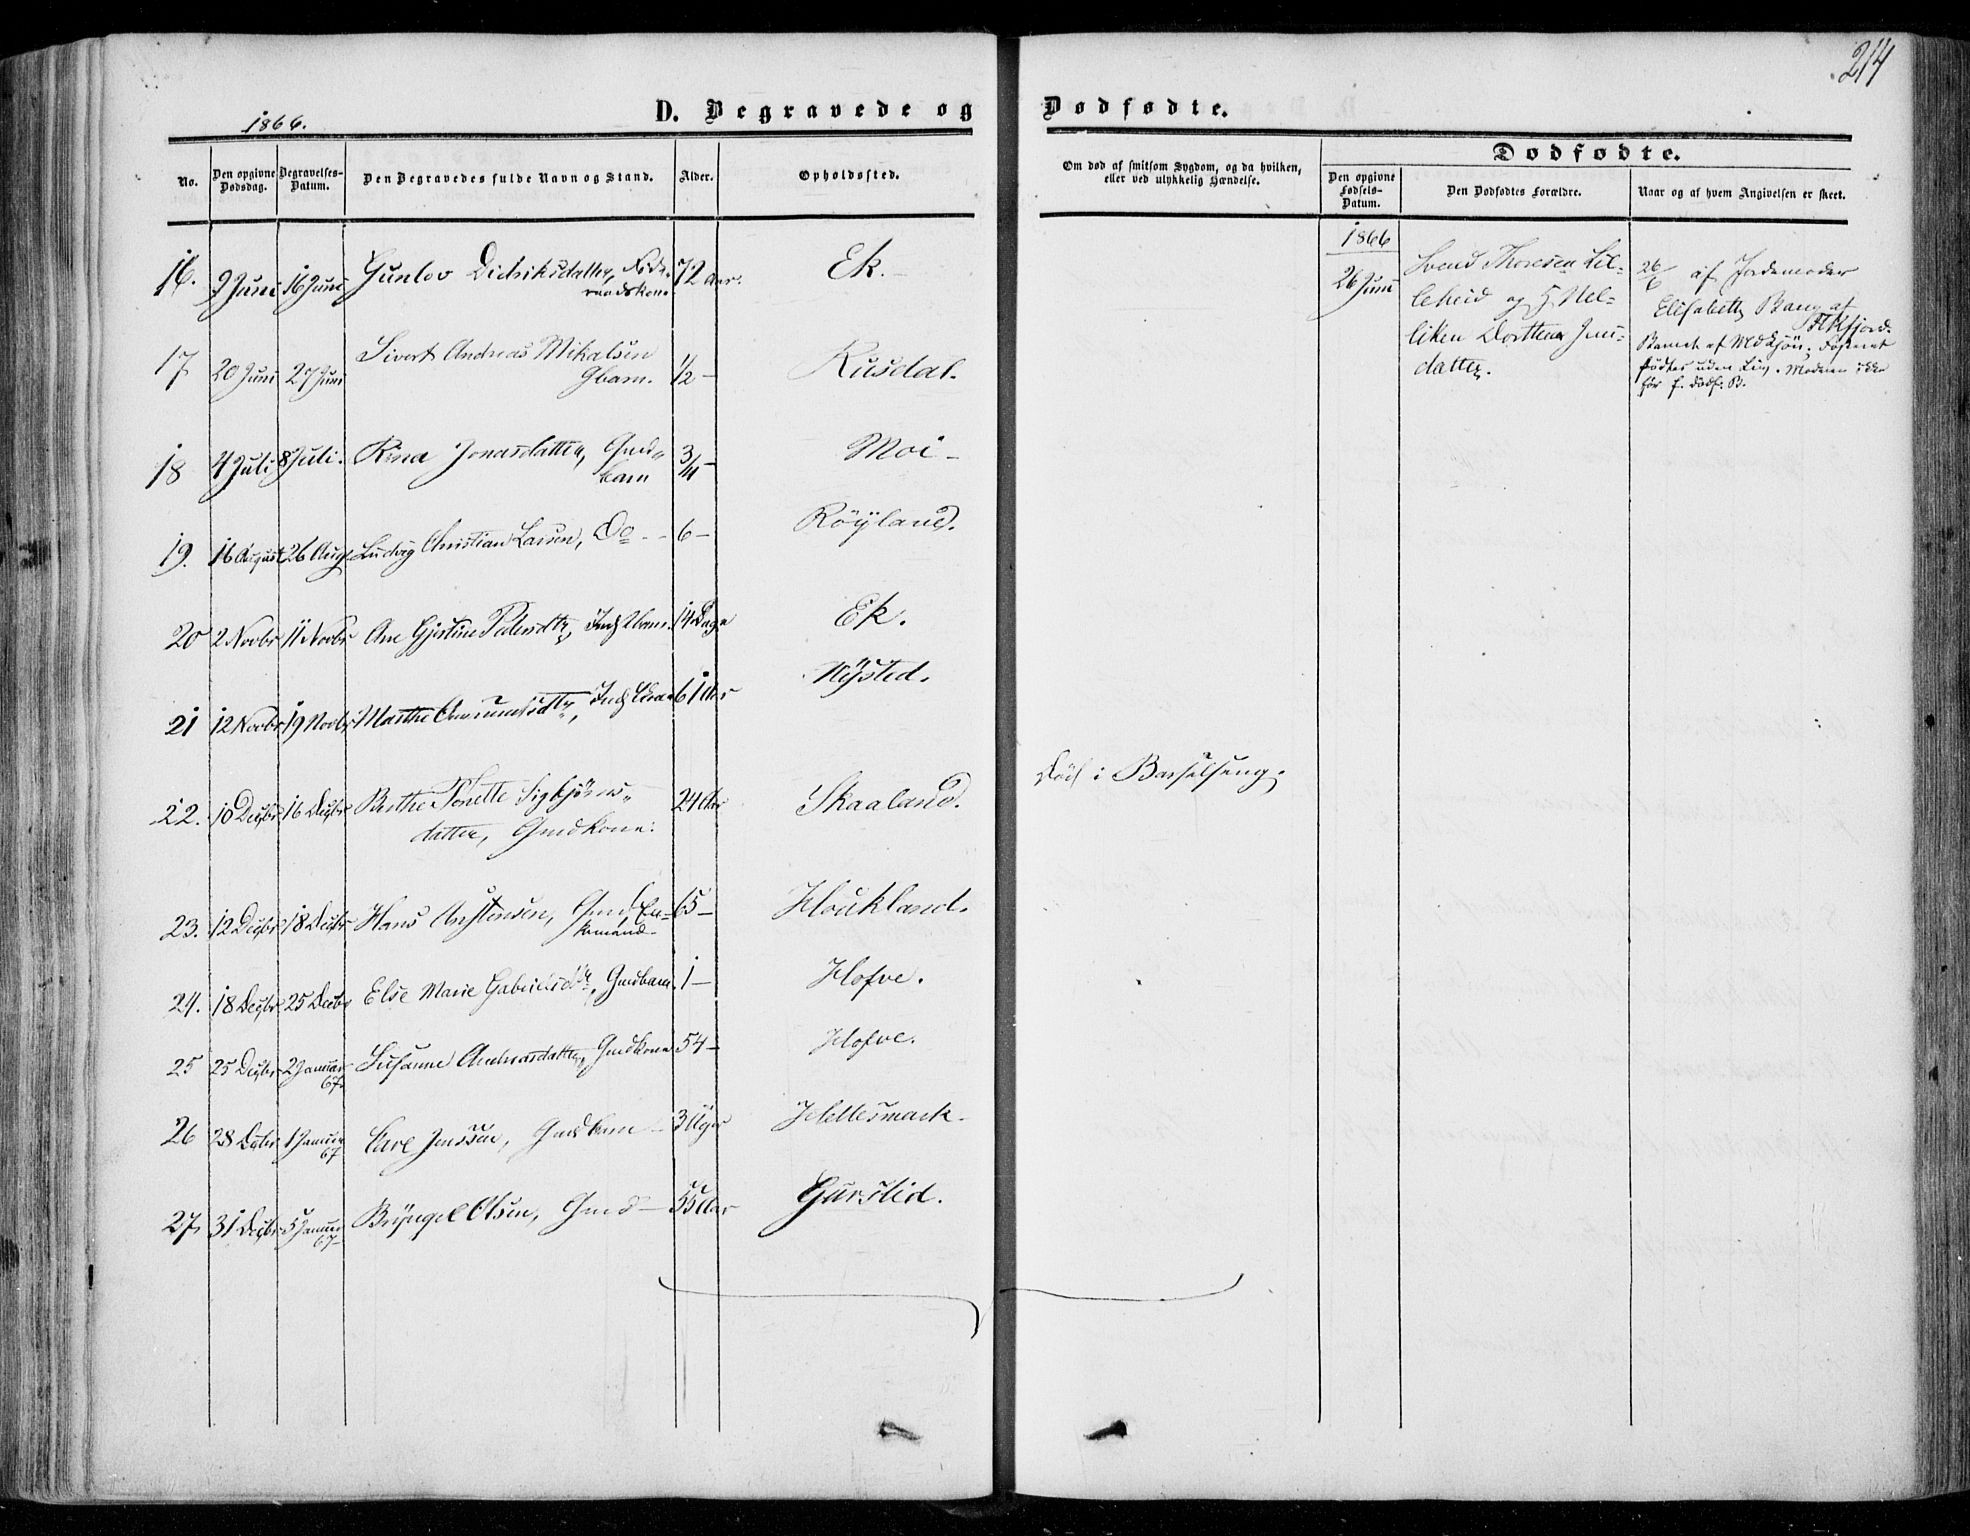 214
1866.
D. Begravede og Dødfødte.
No.
Den opgivne Dødsdag.
Begravelses-Datum.
Den Begravedes fulde Navn og Stand.
Alder.
Opholdssted.
Om død af smitsom Sygdom, og da hvilken,
eller ved ulykkelig Hændelse.
Dødfødte.
Den opgivne Fødsels-Datum.
Den Dødfødtes Forældre.
Naar og af hvem Angivelsen er skeet.
16. 9 Juni 16 Juni Gunlov Didriksdatter, 72 Aar. Ek.
17 20 Juni 27 Juni Sivert Andreas Mikalsen 1/2 – Rusdal.
Gbarn.
18 4 Juli 8 Juli. Rina Jonasdatter, Gmd„ 3/4 – Moi –
barn
19. 16 August 26 Aug Ludvig Christian Larsen, Do – 6 – Röyland.
20 2 Novbr 11 Novbr Ane Gjertine Pedersdtr, 14 Dage Ek.
21 12 Novbr 19 Novbr Marthe 61 Aar Nysted.
22. 10 Decbr 16 Decbr Berthe Tonette Sigbjörns„ 24 Aar Skaaland. Död i Barselseng.
datter, Gmdkone.
23. 12 Decbr 18 Decbr Hans Austensen, Gmd, En- 65 – Houkland.
kemand
24. 18 Decbr 25 Decbr Else Marie Gabrielsdtr, Gmdbarn. 1 – Hofve.
25 25 Decbr 2 Januar Susanne Andreasdatter, Gmdkone 54 – Hofve.
67
26 28 Dcbr 1 Januar Jenssen, Gmdbarn – 3 Uger Hellesmark.
67
27. 31 Decbr 5 Januar Bryngel Olsen, Gmd – 55 Aar Gurslid.
67
1866
26 Juni
Svend Thoresen Lil-
leheid og H. Nel-
liken Dorthea
datter.
26/6 af Jordemoder
Elisabeth Bang af
Rækfjord.
Barnet af Mdkjön; Fosteret
födtes uden Liv. Moderen ikke
för f. dödf. B.